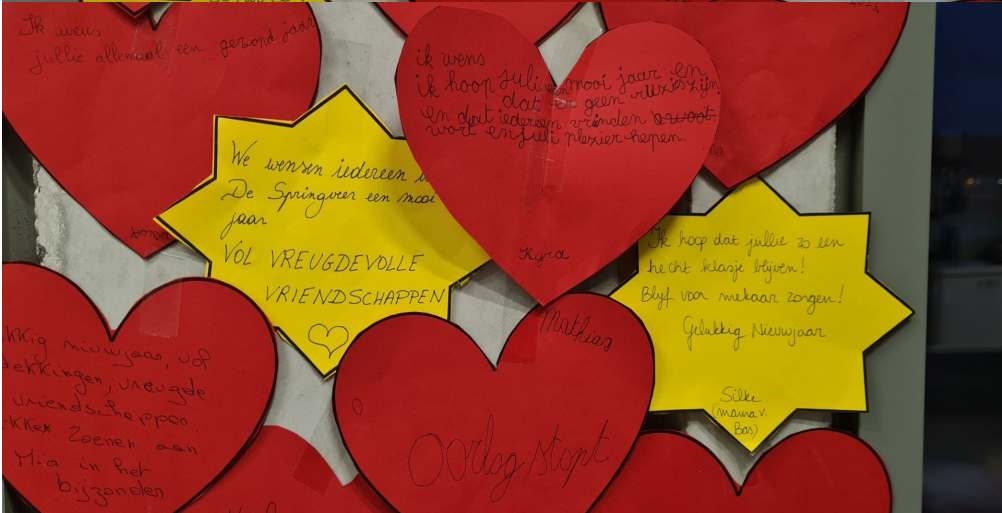 Ik wens
jullie allemaal een gezond jaar
ik wens
ik hoop juli een mooi jaar en
dat er geen ruzies zijn
en dat iedereen vrinden
wort en juli plezier hepen.
Kyra
We wensen iedereen
De Springveer een mooi
jaar
VOL VREUGDEVOLLE
VRIENDSCHAPPEN
Ik hoop dat jullie zo een
hecht klasje blijven!
Blijf voor mekaar zorgen!
Gelukkig Nieuwjaar
Silke
(mama v.
Bas)
kkig nieuwjaar, vol
ekkingen, vreugde
vriendscheppen.
kker Zoenen aan
Mia in het
bijzonder
Mathias
Oorlog stopt